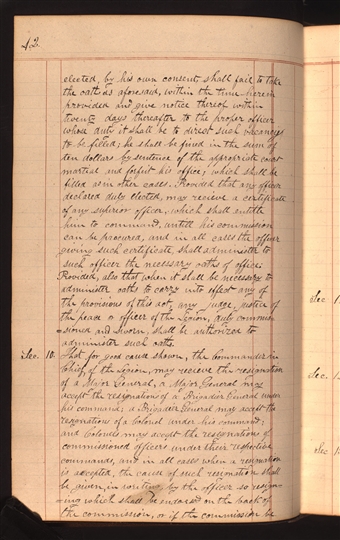 42.
elected, by his own consent shall fail to take
the oath as aforesaid, within the time herein
provided and give notice thereof within
twenty days thereafter to the proper officer
whose duty it shall be to direct such vacancy
to be filled; he shall be fined in the sum of
ten dollars by sentence of the appropriate court
martial and forfeit his office; which shall be
filled as in other cases, Provided that any officer
declared duly elected, may receive a certificate
of any superior officer, which shall entitle
him to command, untill his commission
can be procured, and in all cases the officer
giving such certificate shall administer to
such officer the necessary oaths of office;
Provided, also that when it shall be necessary to
administer oaths to carry into effect any of
the provisions of this act, any Judge, justice of
the peace or officer of the Legion, duly commis-
sioned and sworn, shall be authorized to
administer such oaths.
Sec. 10. That for good cause shown, the Commander in
Chief, of the Legion, may receive the resignation
of a Major General, a Major General may
accept the resignations of a Brigadier General under
his command; a Brigadier General may accept the
resignations of a Colonel under his command;
and Colonels may accept the resignations of
commissioned officers under their respective
commands, and in all cases when a resignation
is accepted, the cause of such resignation shall
be given, in writing, by the officer so resign-
ing which shall be endorsed on the back of
the commission, or if the commission be
Sec
Sec.
Sec